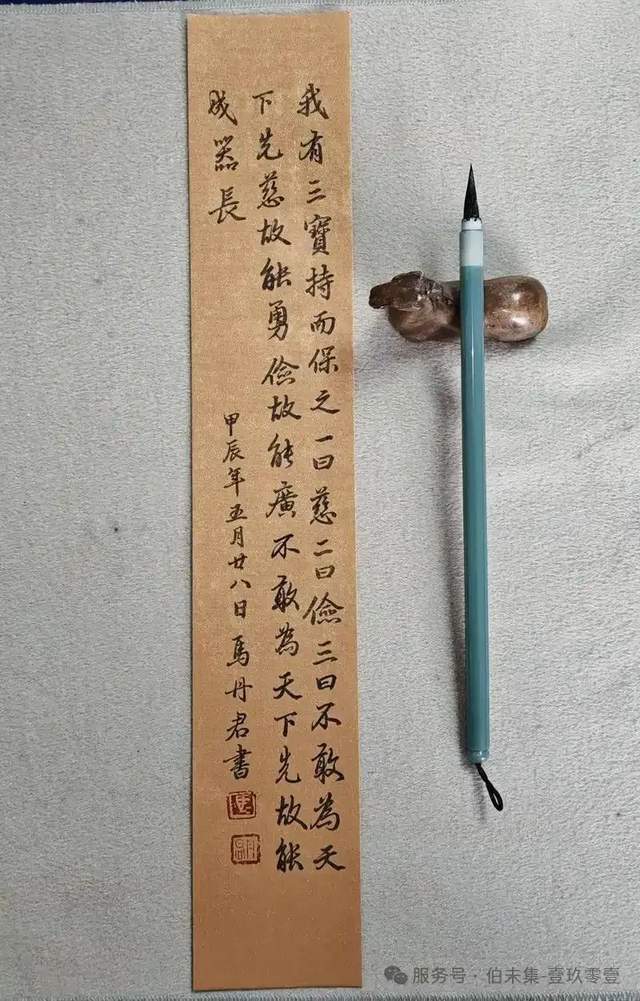 我有三寶持而保之一曰慈二曰儉三曰不敢為天
下先慈故能勇儉故能廣不敢為天下先故能
成器長
甲辰年五月廿八日馬丹君書
服务号·伯未集-壹玖零壹